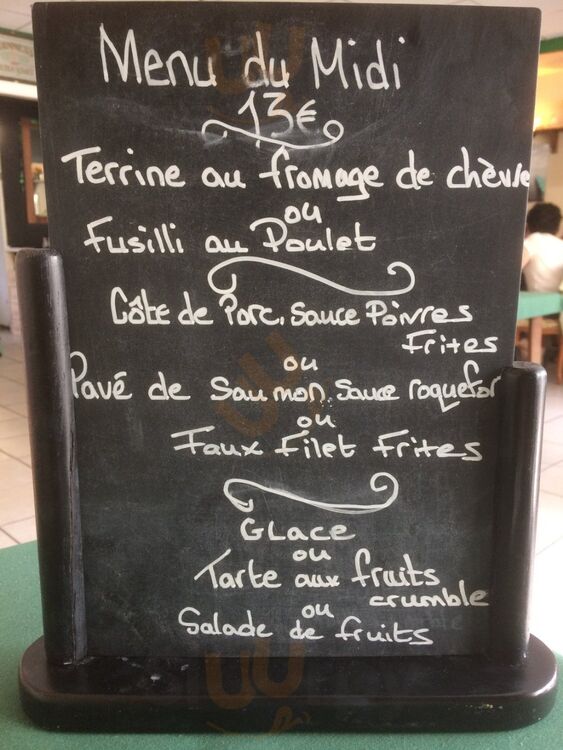 Menu du Midi
13€
Terrine au fromage de chèvre
ou
Fusilli au Poulet
Côte de Porc, Sauce Poivres
Frites
ou
Pavé de Saumon, Sauce roquefor
ou
Faux Filet Frites
Glace
ou
Tarte aux fruits
crumble
ou
Salade de fruits